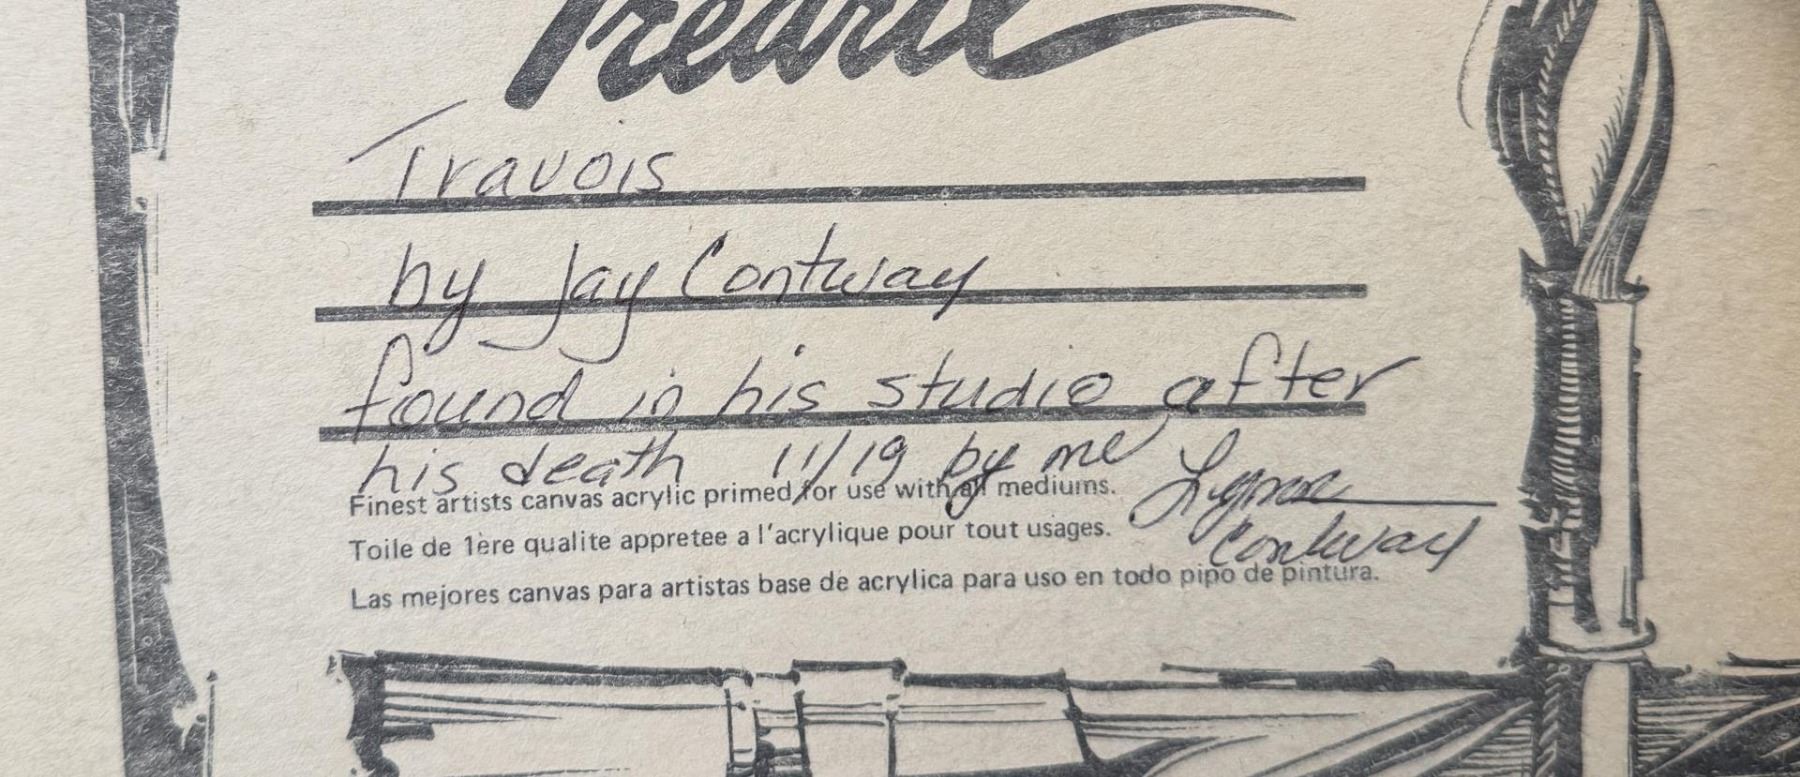 Fredrix
Travois
by Jay Contway
found in his studio after
his death 11/19 by me Lynn
Contway
Finest artists canvas acrylic primed for use with all mediums.
Toile de 1ère qualite appretee a l'acrylique pour tout usages.
Las mejores canvas para artistas base de acrylica para uso en todo pipo de pintura.